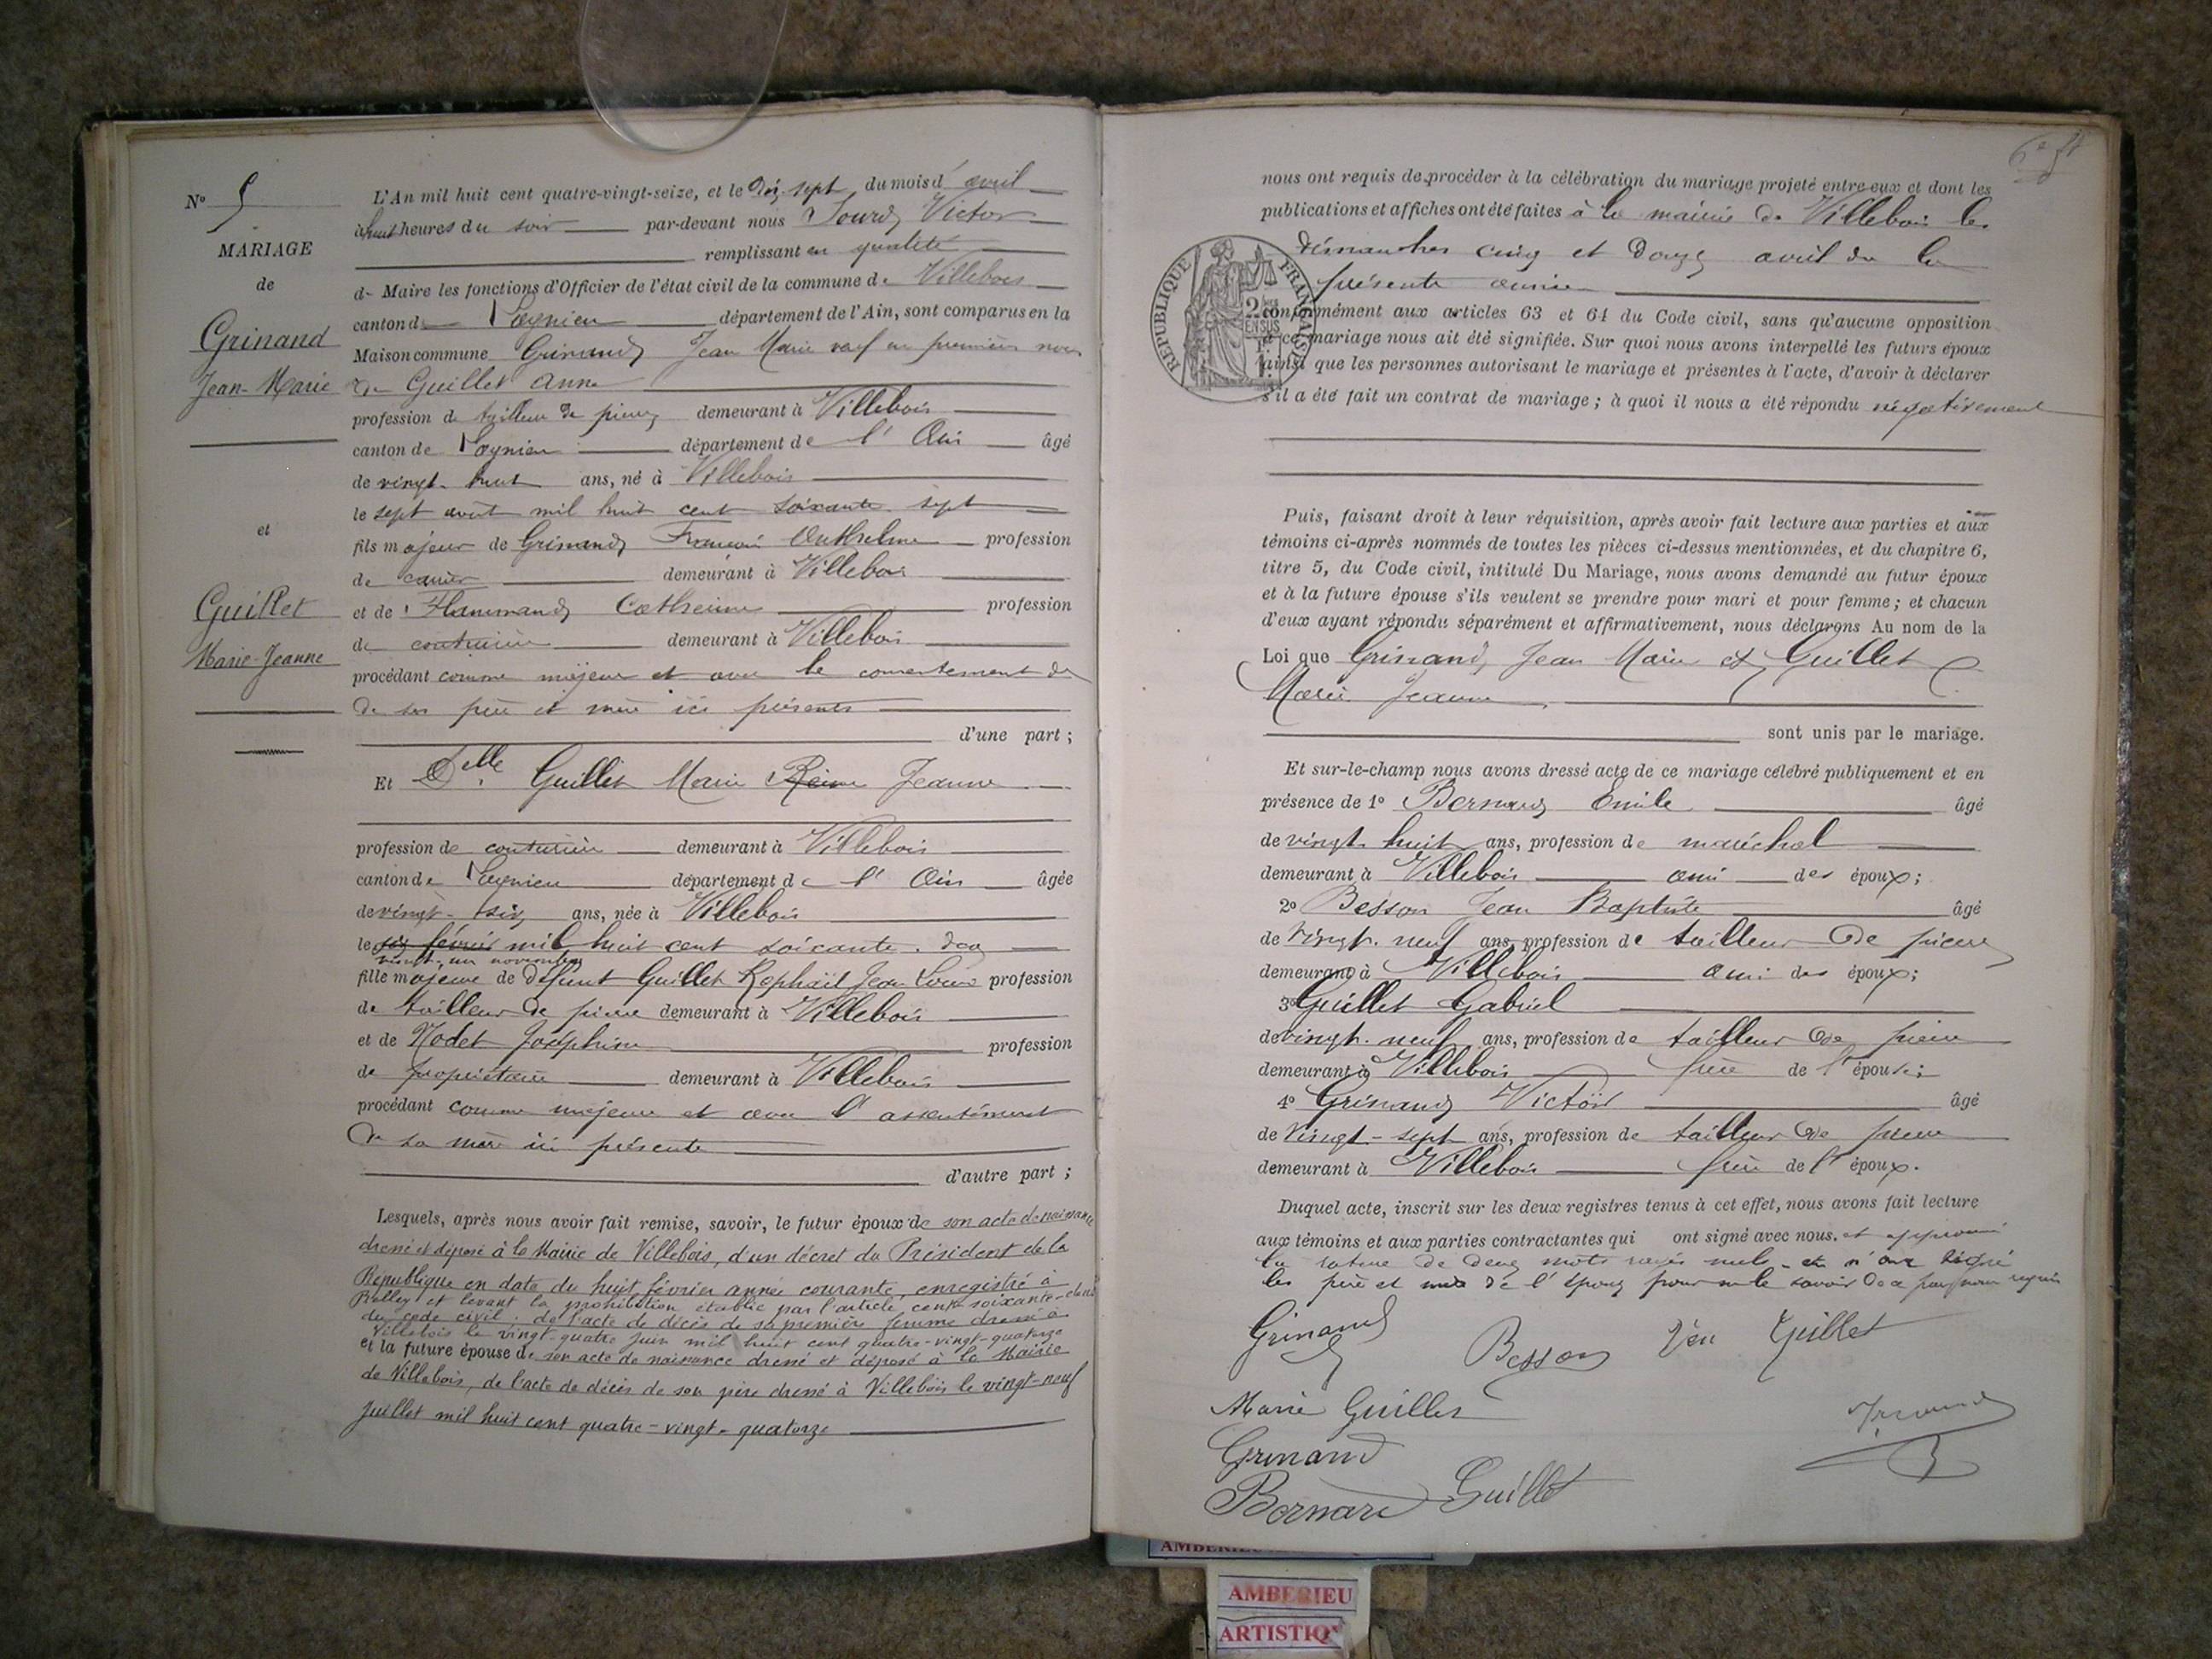 N° 5
MARIAGE
de
Grinand
Jean-Marie
et
Guillet
Marie-Jeanne
L'An mil huit cent quatre-vingt-seize, et le dix-sept du mois d'avril
à huit heures du soir par-devant nous Sourd Victor
remplissant en qualité
de Maire les fonctions d'Officier de l'état civil de la commune de Villebois
canton de Lagnieu département de l'Ain, sont comparus en la
Maison commune Grinand Jean Marie veuf en premières noces
de Guillet Anne
profession de tailleur de pierres demeurant à Villebois
canton de Lagnieu département de l'Ain âgé
de vingt-huit ans, né à Villebois
le sept août mil huit cent soixante-sept
fils majeur de Grinand François Anthelme profession
de carrier demeurant à Villebois
et de Flammand Catherine profession
de couturière demeurant à Villebois
procédant comme majeur et avec le consentement de
de ses père et mère ici présents
d'une part ;
Et Delle Guillet Marie Reine Jeanne
profession de couturière demeurant à Villebois
canton de Lagnieu département de l'Ain âgée
de vingt-six ans, née à Villebois
le six février mil huit cent soixante
vingt-un novembre
fille majeure de défunt Guillet Raphaël Jean Louis profession
de tailleur de pierre demeurant à Villebois
et de Nodet Joséphine profession
de propriétaire demeurant à Villebois
procédant comme majeure et avec l'assentiment
de sa mère ici présente
d'autre part ;
Lesquels, après nous avoir fait remise, savoir, le futur époux de son acte de naissance
dressé et déposé à la Mairie de Villebois, d'un décret du Président de la
République en date du huit février année courante, enregistré à
Belley et levant la prohibition établie par l'article cent-soixante-deux
du code civil ; de l'acte de décès de sa première femme dressé à
Villebois le vingt-quatre juin mil huit cent quatre-vingt-quatorze
et la future épouse de son acte de naissance dressé et déposé à la Mairie
de Villebois, de l'acte de décès de son père dressé à Villebois le vingt-neuf
juillet mil huit cent quatre-vingt-quatorze
nous ont requis de procéder à la célébration du mariage projeté entre eux et dont les
publications et affiches ont été faites à la mairie de Villebois les
dimanches cinq et douze avril de la
présente année
conformément aux articles 63 et 64 du Code civil, sans qu'aucune opposition
à ce mariage nous ait été signifiée. Sur quoi nous avons interpellé les futurs époux
ainsi que les personnes autorisant le mariage et présentes à l'acte, d'avoir à déclarer
s'il a été fait un contrat de mariage ; à quoi il nous a été répondu négativement
RÉPUBLIQUE FRANÇAISE
Puis, faisant droit à leur réquisition, après avoir fait lecture aux parties et aux
témoins ci-après nommés de toutes les pièces ci-dessus mentionnées, et du chapitre 6,
titre 5, du Code civil, intitulé Du Mariage, nous avons demandé au futur époux
et à la future épouse s'ils veulent se prendre pour mari et pour femme ; et chacun
d'eux ayant répondu séparément et affirmativement, nous déclarons Au nom de la
Loi que Grinand, Jean Marie et Guillet
Marie Jeanne
sont unis par le mariage.
Et sur-le-champ nous avons dressé acte de ce mariage célébré publiquement et en
présence de 1° Bernard Emile âgé
de vingt-huit ans, profession de maréchal
demeurant à Villebois ami des époux ;
2° Besson Jean Baptiste âgé
de vingt-neuf ans, profession de tailleur de pierre
demeurant à Villebois ami des époux ;
3° Guillet Gabriel
de vingt-neuf ans, profession de tailleur de pierre
demeurant à Villebois frère de l'épouse ;
4° Grinand Victor âgé
de vingt-sept ans, profession de tailleur de pierre
demeurant à Villebois frère de l'époux.
Duquel acte, inscrit sur les deux registres tenus à cet effet, nous avons fait lecture
aux témoins et aux parties contractantes qui ont signé avec nous, et approuvé
la rature de deux mots rayés nuls et n'ont signé
les père et mère de l'époux pour ne le savoir de ce par nous requis
Grinand
Besson
Vve Guillet
Marie Guillet
Grinand
Bernard
Guillet
AMBERIEU
ARTISTIQ